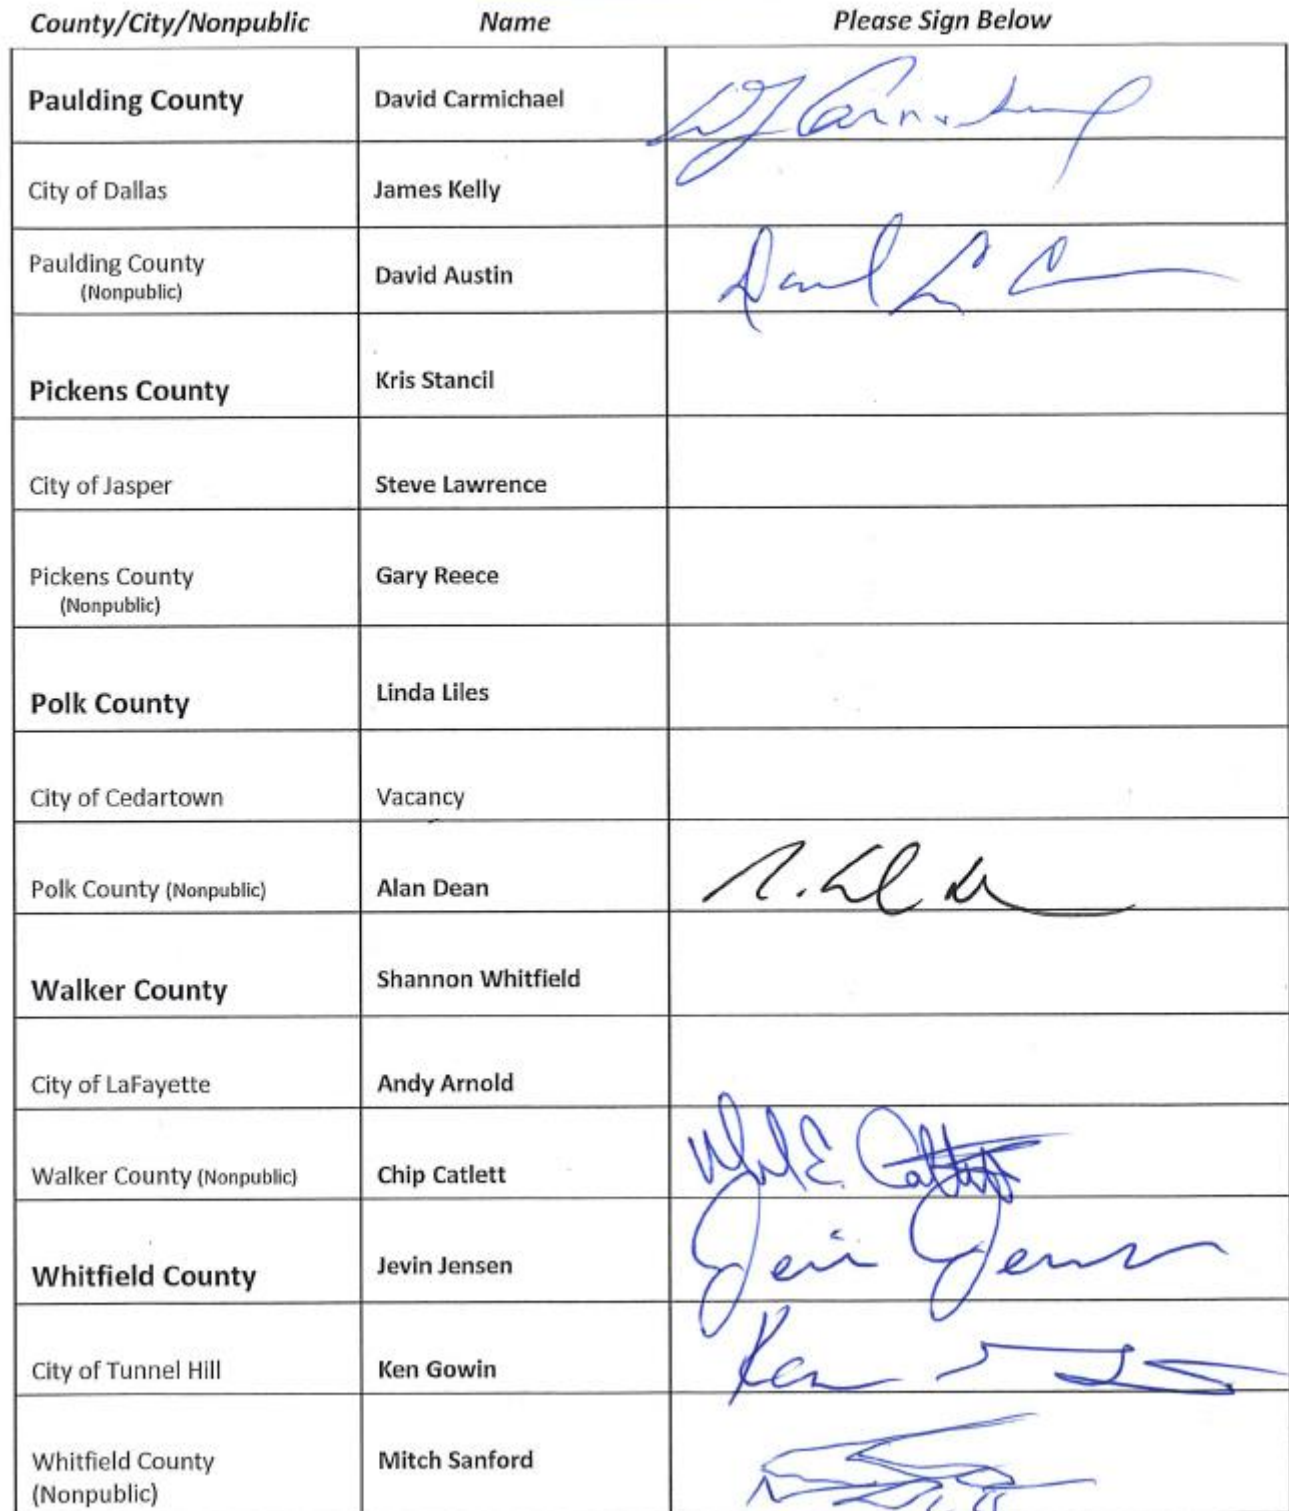 County/City/Nonpublic Name Please Sign Below
Paulding County David Carmichael
City of Dallas James Kelly
Paulding County
(Nonpublic) David Austin
Pickens County Kris Stancil
City of Jasper Steve Lawrence
Pickens County
(Nonpublic) Gary Reece
Polk County Linda Liles
City of Cedartown Vacancy
Polk County (Nonpublic) Alan Dean
Walker County Shannon Whitfield
City of LaFayette Andy Arnold
Walker County (Nonpublic) Chip Catlett
Whitfield County Jevin Jensen
City of Tunnel Hill Ken Gowin
Whitfield County
(Nonpublic) Mitch Sanford